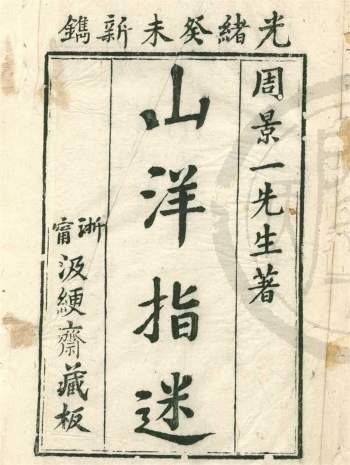 光緒癸未新鐫
周景一先生著
山洋指迷
浙甯汲綆齋藏板